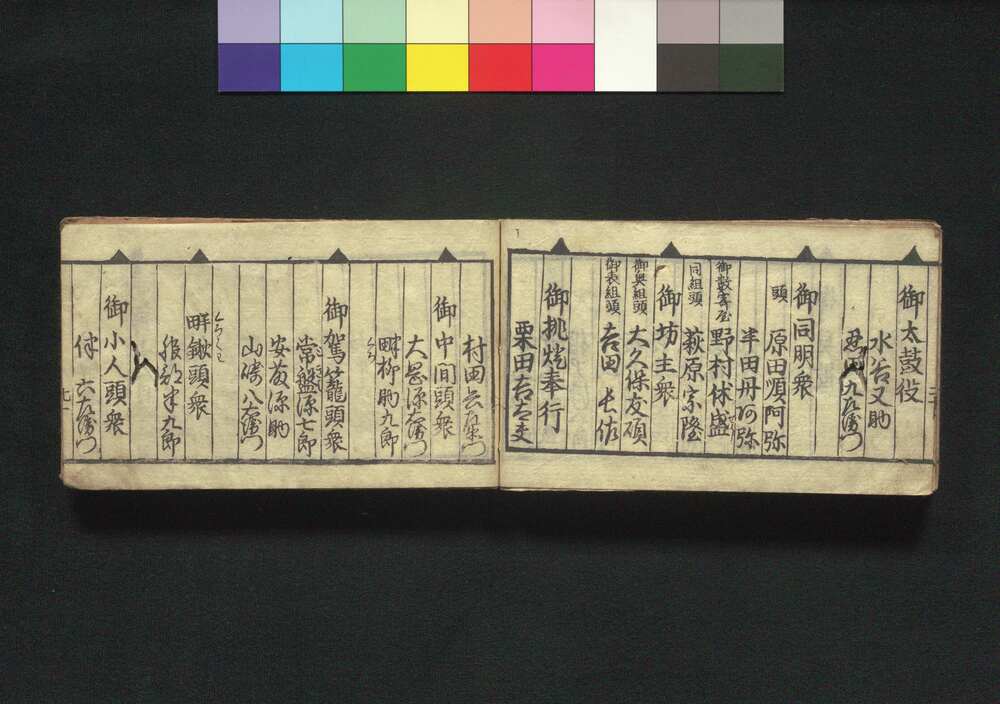 御太鼓役
水谷又助
九左衛門
御同明衆
頭 原田順阿弥
半田丹阿弥
御数寄屋 野村休盛
同組頭 萩原宗隆
御坊主衆
御奥組頭 大久保友碩
御表組頭 吉田長佐
御挑灯奉行
栗田吉太夫
村田
御中間頭衆
大岡源右衛門
畔柳助九郎
御駕籠頭衆
常盤源七郎
安藤源助
山崎八右衛門
畔鍬頭衆
服部半九郎
御小人頭衆
伴 六左衛門